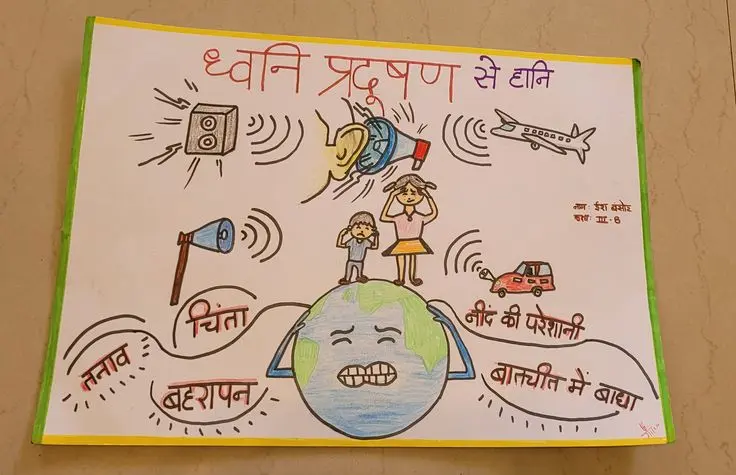 ध्वनि प्रदूषण से हानि
नाम: ईशा
कक्षा: III - B
चिंता
नींद की परेशानी
तनाव
बहरापन
बातचीत में बाधा